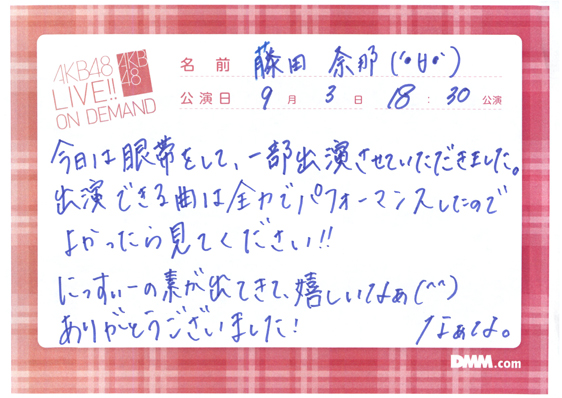 AKB48
LIVE!!
ON DEMAND
AKB
48
名前 藤田 奈那(°∀°)
公演日 9月3日 18:30公演
今日は眼帯をして、一部出演させていただきました。
出演できる曲は全力でパフォーマンスしたので
よかったら見てください!!
にっすぃーの素が出てきて、嬉しいなぁ(^^)
ありがとうございました!
なぁな。
DMM.com